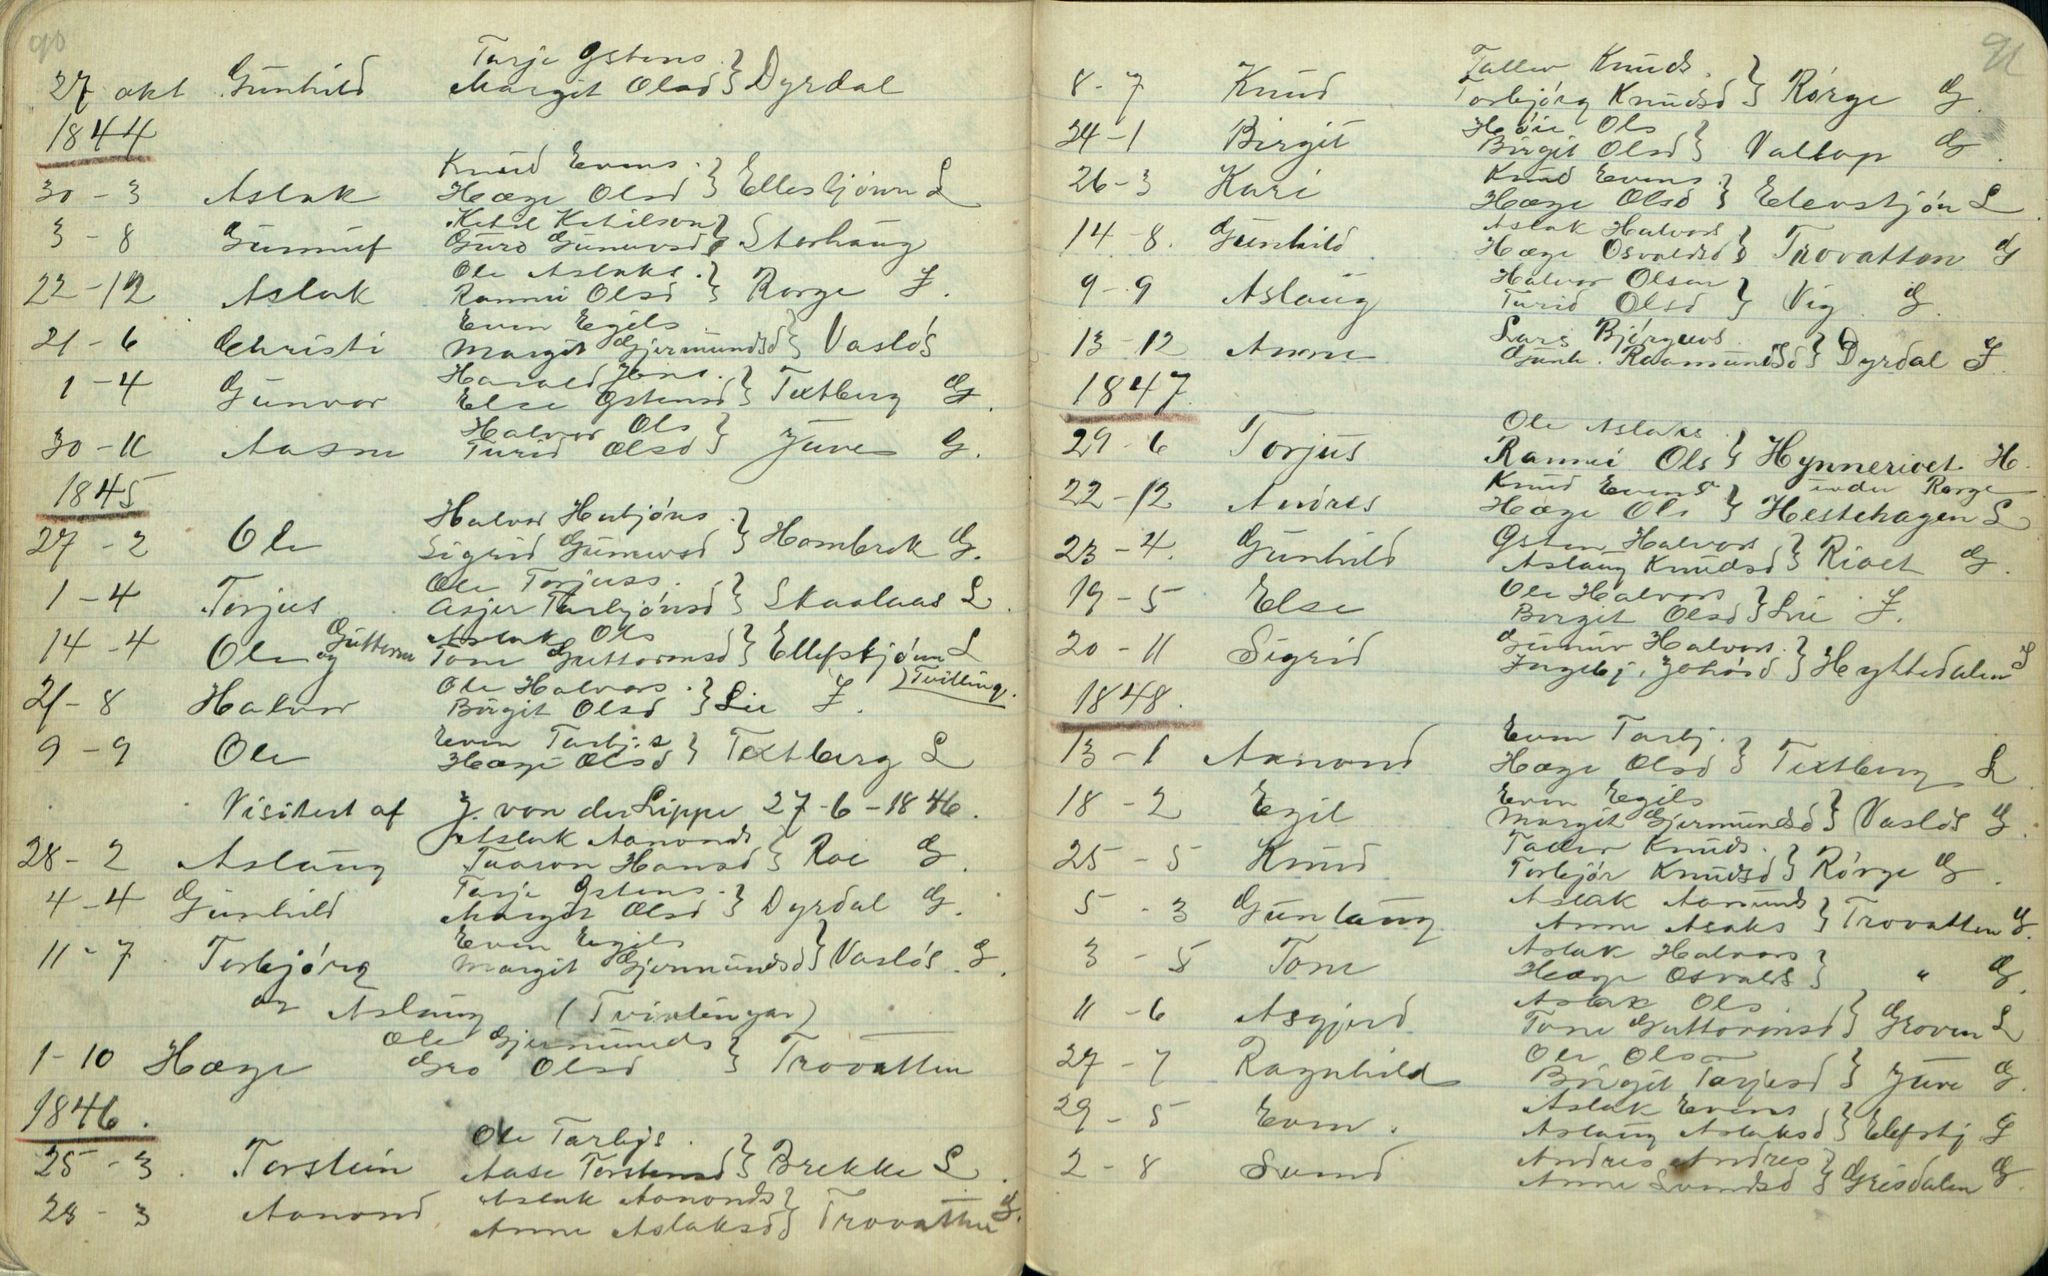 90
Tarje Østens.
27 okt Gunhild Margit Olsd } Dyrdal
1844
Knud Evens.
30 - 3 Aslak Hæge Olsd } Ellesstjønn L
Ketil Ketilson
3 - 8 Gunnuf Guro Gunuvsd } Storhaug
Ole Aslaks.
22 - 12 Aslak Rannei Olsd } Rorge F.
Even Egils
21 - 6 Christi Margit Gjermundsd } Vasløs
Harald Jons.
1 - 4 Gunvor Else Østensd } Textberg G.
Halvor Ols
30 - 11 Aasne Turid Olsd } Juve G.
1845
Halvor Herbjøns.
27 - 2 Ole Sigrid Gunuvsd } Hombrek G.
Ole Torjuss.
1 - 4 Torjus Asjer Tarbjønsd } Skaalaas L.
Aslak Ols
14 - 4 Ole og Guttorm Tone Guttormsd } Ellefstjønn L
Ole Halvors. ) Tvilling.
21 - 8 Halvor Birgit Olsd } Lie F.
Even Tarbj.s
9 - 9 Ole Hæge Olsd } Textberg L
Visitert af J. von der Lippe 27 - 6 - 1846.
Aslak Aanonds
28 - 2 Aslaug Taaron Hansd } Roe G.
Tarje Østens.
4 - 4 Gunhild Margit Olsd } Dyrdal G.
Even Egils
11 - 7 Torbjørg Margit Gjermundsd } Vasløs G.
og Aslaug (Tvinlingar)
Ole Gjermunds
1 - 10 Hæge Gro Olsd } Trovatten
1846.
Ole Tarbjs.
25 - 3. Torstein Aase Torstensd } Brekke L.
Aslak Aanonds
28 - 3 Aanond Anne Aslaksd } Trovatten G.
91
Tallev Knuds.
8 - 7 Knud Torbjørg Knudsd } Rørge G.
Høie Ols
24 - 1 Birgit Birgit Olsd } Valtop G.
Knud Evens.
26 - 3 Kari Hæge Olsd } Elevstjøn L.
Aslak Halvors
14 - 8. Gunhild Hæge Osvaldsd } Trovatten G
Halvor Olsen
9 - 9 Aslaug Turid Olsd } Vig G.
Lars Bjørguvs.
13 - 12 Anne Gunh. Raamundsd } Dyrdal F.
1847.
Ole Aslaks.
29 - 6 Torjus Rannei Ols } Hynnerioet H.
Knud Evens under Rorge
22 - 12 Andres Hæge Ols } Hestehagen L
Østen Halvors
23 - 4. Gunhild Aslaug Knudsd } Rioet G.
Ole Halvors
19 - 5 Else Birgit Olsd } Lie F.
Gunuv Halvors.
20 - 11 Sigrid Ingebj. Johósd } Hyttedalen F
1848.
Even Tarbj.
13 - 1 Aanond Hæge Olsd } Textberg L
Even Egils
18 - 2 Egil Margit Gjermundsd } Vasløs G.
Tallev Knuds.
25 - 5 Knud Torbjør Knudsd } Rørge G.
Aslak Aanunds
5 - 3 Gunlaug Anne Asaks } Trovatten G.
Aslak Halvors
3 - 5 Tone Hæge Osvalds } " G.
Aslak Ols
11 - 6 Asgjerd Tone Guttormsd } Groven L
Ole Ols
27 - 7 Ragnhild Birgit Tarjesd } Juve G.
Aslak Evens
29 - 5 Even. Aslaug Aslaksd } Elefstj G
Andres Andres
2 - 8 Svend Anne Svendsd } Grisdalen G.